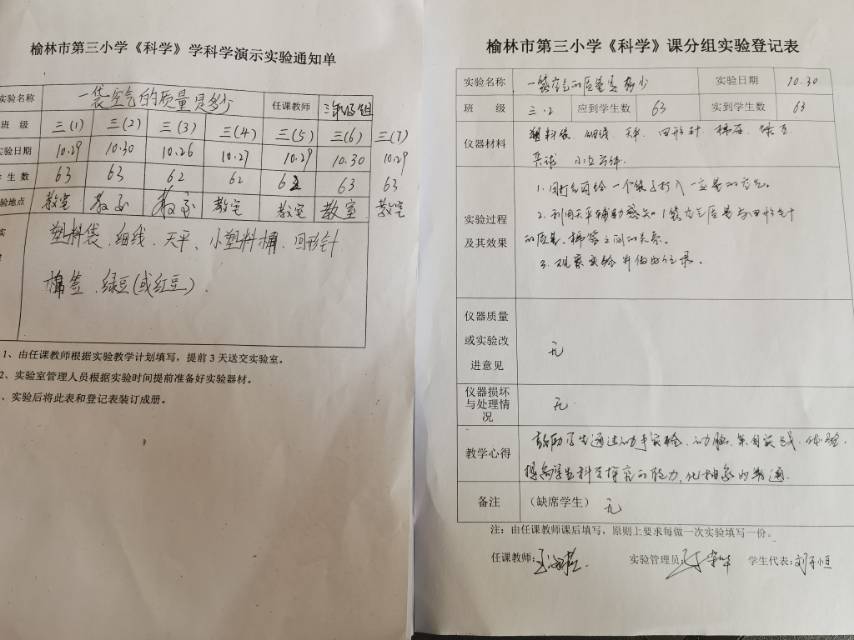 榆林市第三小学《科学》学科学演示实验通知单
实验名称 一袋空气的质量是多少 任课教师 三年级组
班 级 三(1) 三(2) 三(3) 三(4) 三(5) 三(6) 三(7)
实验日期 10.29 10.30 10.26 10.27 10.29 10.30 10.29
学生数 63 63 62 62 62 63 63
验地点 教室 教室 教室 教室 教室 教室 教室
实
塑料袋、细线、天平、小塑料桶、回形针
棉签、绿豆(或红豆).
1、由任课教师根据实验教学计划填写，提前3天送交实验室。
2、实验室管理人员根据实验时间提前准备好实验器材。
、实验后将此表和登记表装订成册。
榆林市第三小学《科学》课分组实验登记表
实验名称 一袋空气的质量是多少 实验日期 10.30
班 级 三.2 应到学生数 63 实到学生数 63
仪器材料 塑料袋 细线 天平. 回形针
实验过程
及其效果
1.用打气筒给一个袋子打入一定量的空气。
2.利用天平
的质量、之间的关系。
3.观察实验并做好记录。
仪器质量
或实验改
进意见
无
仪器损坏
与处理情
况
无
教学心得 鼓励学生通过动手实验、动脑、体验.
提高学生科学探究的能力,
备注 （缺席学生） 无
注：由任课教师课后填写，原则上要求每做一次实验填写一份。
任课教师: 实验管理员: 学生代表: